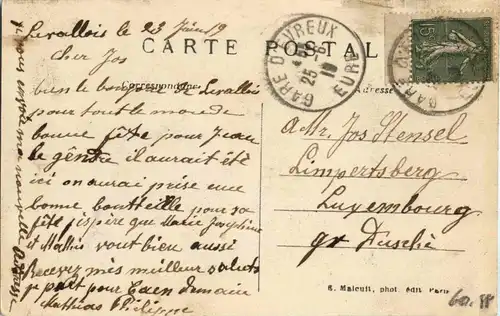 Levallois le 23 Juin 19
CARTE POSTALE
Correspondance
Adresse
GARE D'EVREUX
EURE
25 -6
19
15
Cher Jos
bien le bonjour de Levallois
pour tout le monde
bonne fête pour Jean
le gendre il aurait été
ici on aurai prise une
bonne bouteille pour sa
fête j'ispère que Marie Josephine
et Mathis vont bien aussi
Recevez mes meilleur saluts
je part pour Caen demain
Mathias Philippe
je vous envoie ma nouvelle adresse
A Mr. Jos Stensel
Limpertsberg
Luxembourg
gr Duschè
E. Malcuit, phot. édit Paris